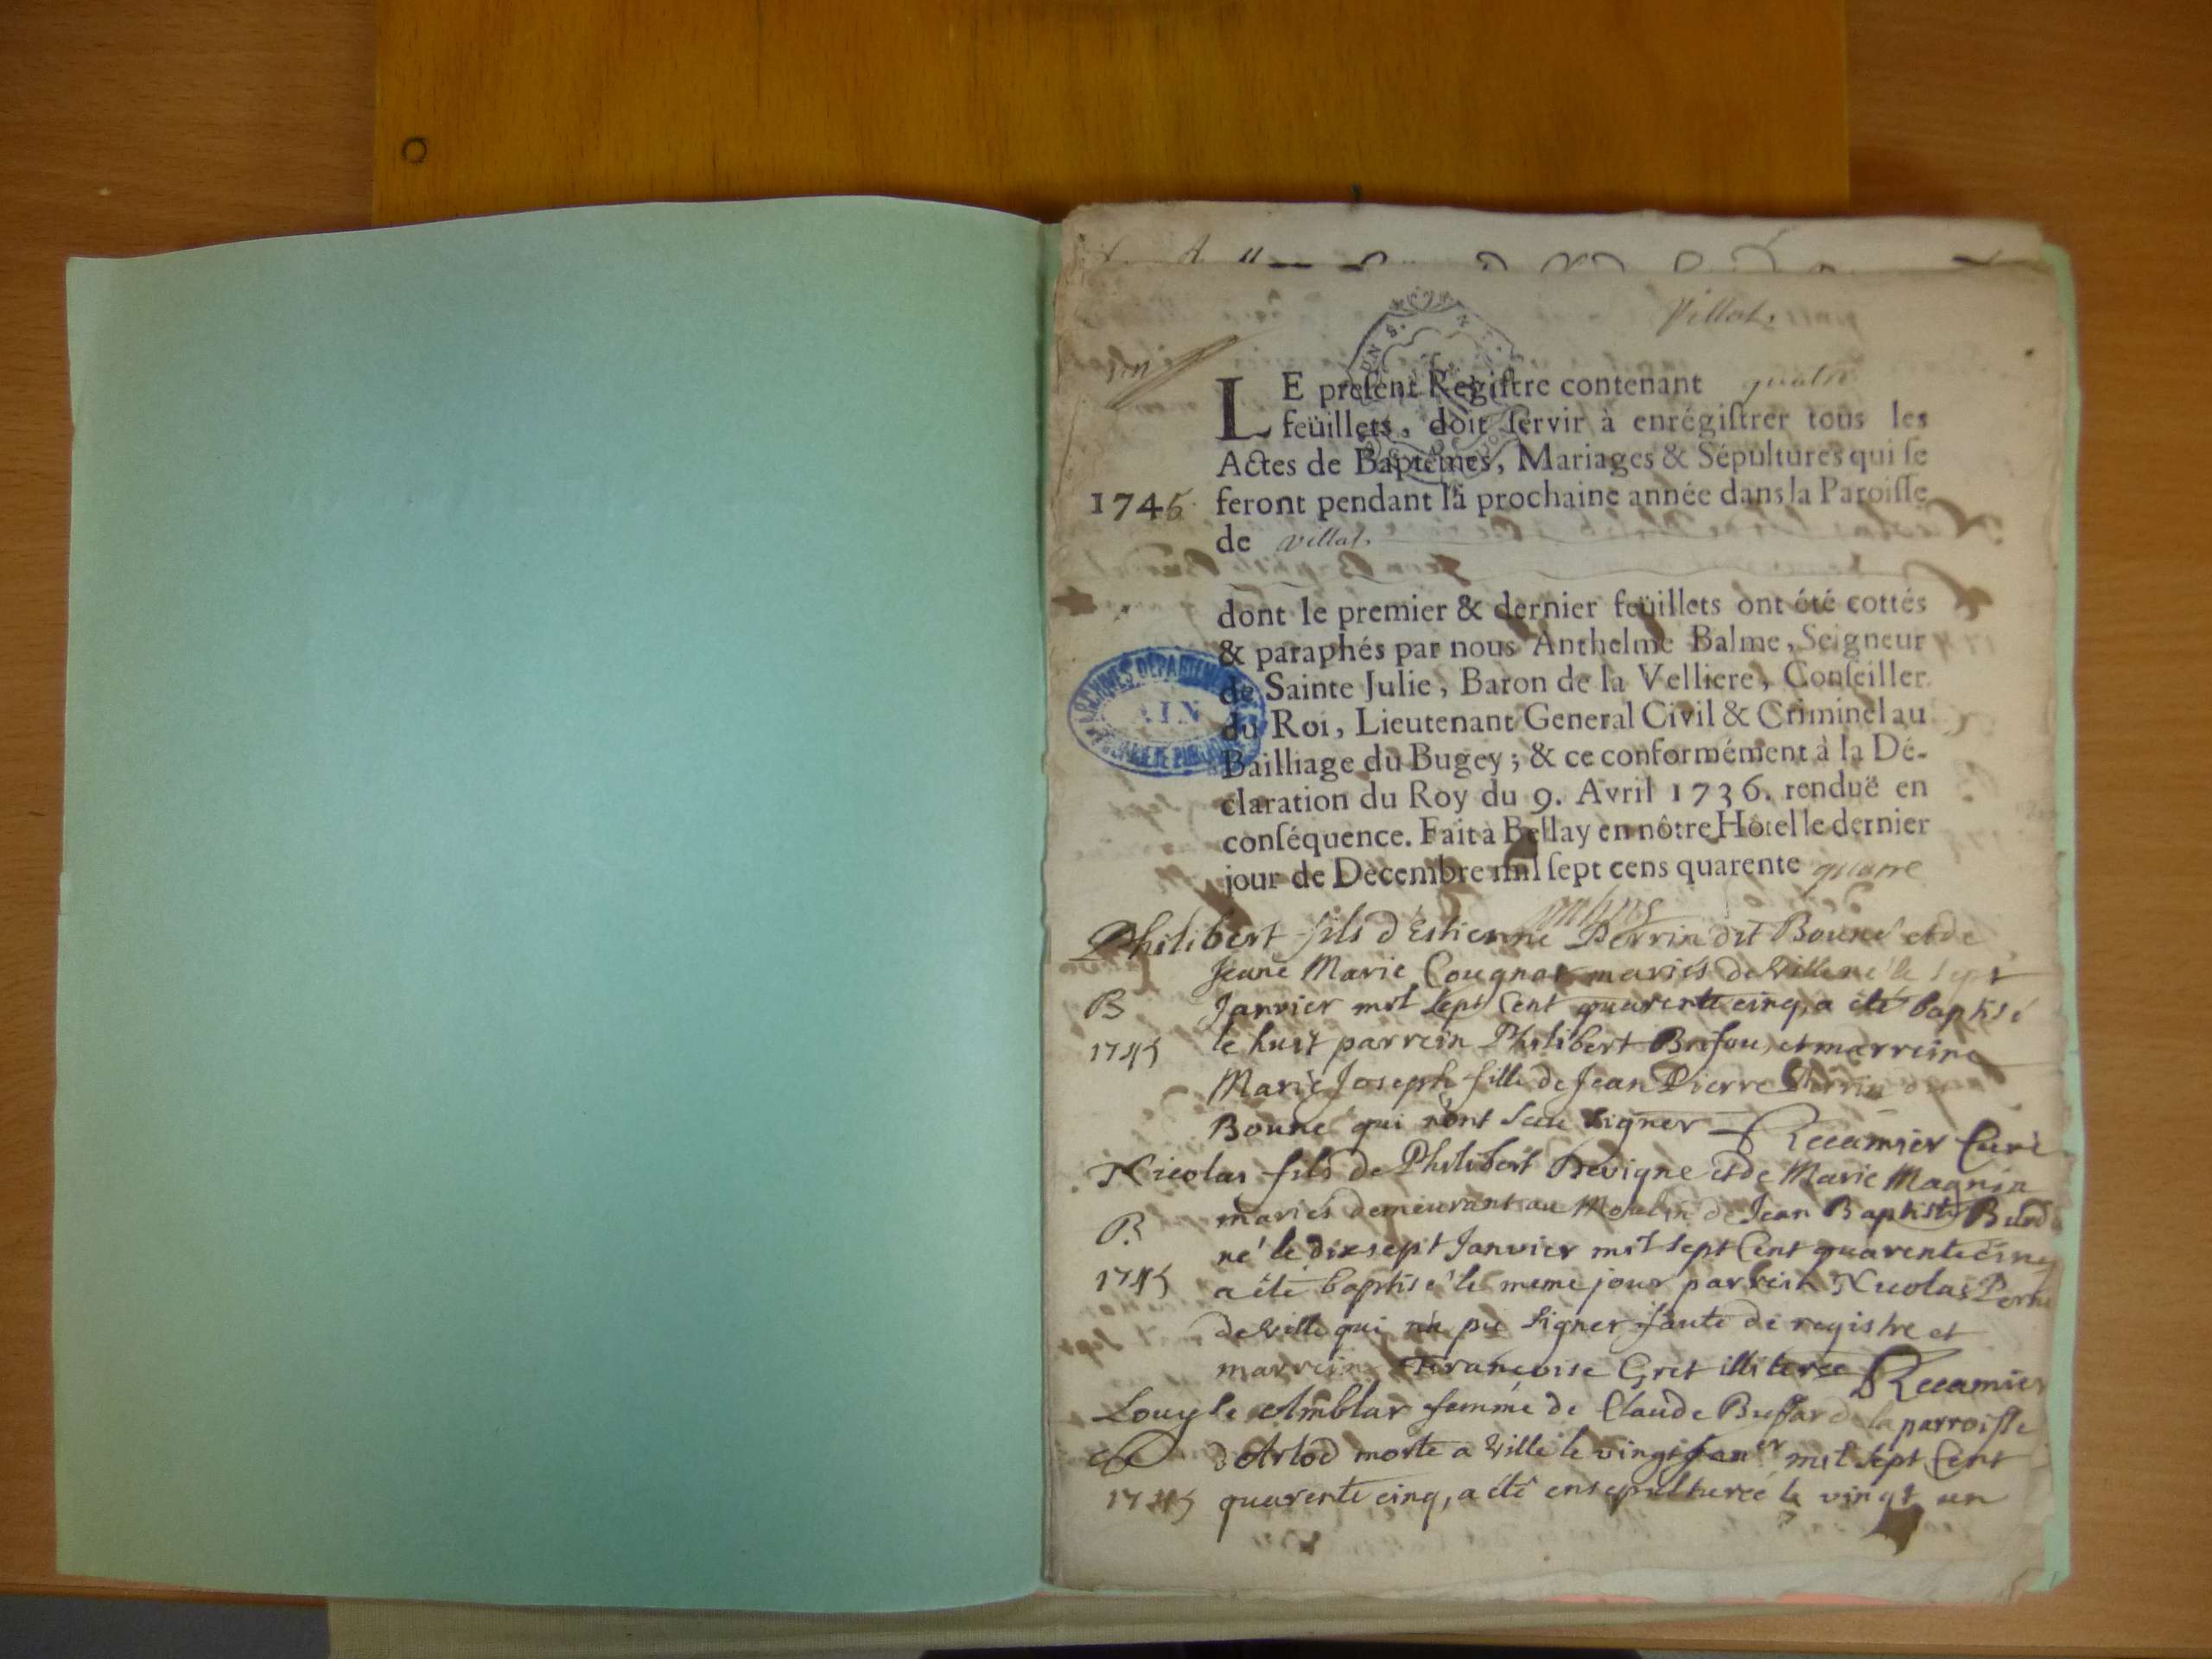 Villat.
LE preſent Regiſtre contenant quatre
feüillets, doit ſervir à enrégiſtrer tous les
Actes de Baptêmes, Mariages & Sépultures qui ſe
1745 feront pendant la prochaine année dans la Paroiſſe
de villat.
dont le premier & dernier feüillets ont été cottés
& paraphés par nous Anthelme Balme, Seigneur
de Sainte Julie, Baron de la Velliere, Conſeiller
du Roi, Lieutenant General Civil & Criminel au
Bailliage du Bugey ; & ce conformément à la Dé-
claration du Roy du 9. Avril 1736. renduë en
conſéquence. Fait à Bellay en nôtre Hôtel le dernier
jour de Decembre mil ſept cens quarente quatre
ARCHIVES DEPARTEMENTALES
AIN
Philibert fils d'Estienne Perrin dit Bouné et de
Jeane Marie Cougnat mariés de Ville né le sept
B Janvier mil sept Cent quarente cinq, a été baptisé
1745 le huit parrein Philibert et marreine
Marie Joseph fille de Jean Pierre Perrin dit
Bouné qui n'ont sceu signer Recamier Curé
Nicolas fils de Philibert Devigne et de Marie Magnin
mariés demeurant au Moulin de Jean Baptiste
B. né le dixsept Janvier mil sept Cent quarente cinq
1745 a été baptisé le meme jour parrein Nicolas
de Ville qui n'a pu signer faute de registre et
marrein Francoise Gret illiteree Recamier
Louyse Amblar femme de Claude Buffard de la parroisse
d'Arlod morte a Ville le vingt Janer mil sept Cent
1745 quarente cinq, a été ensepulturée le vingt un